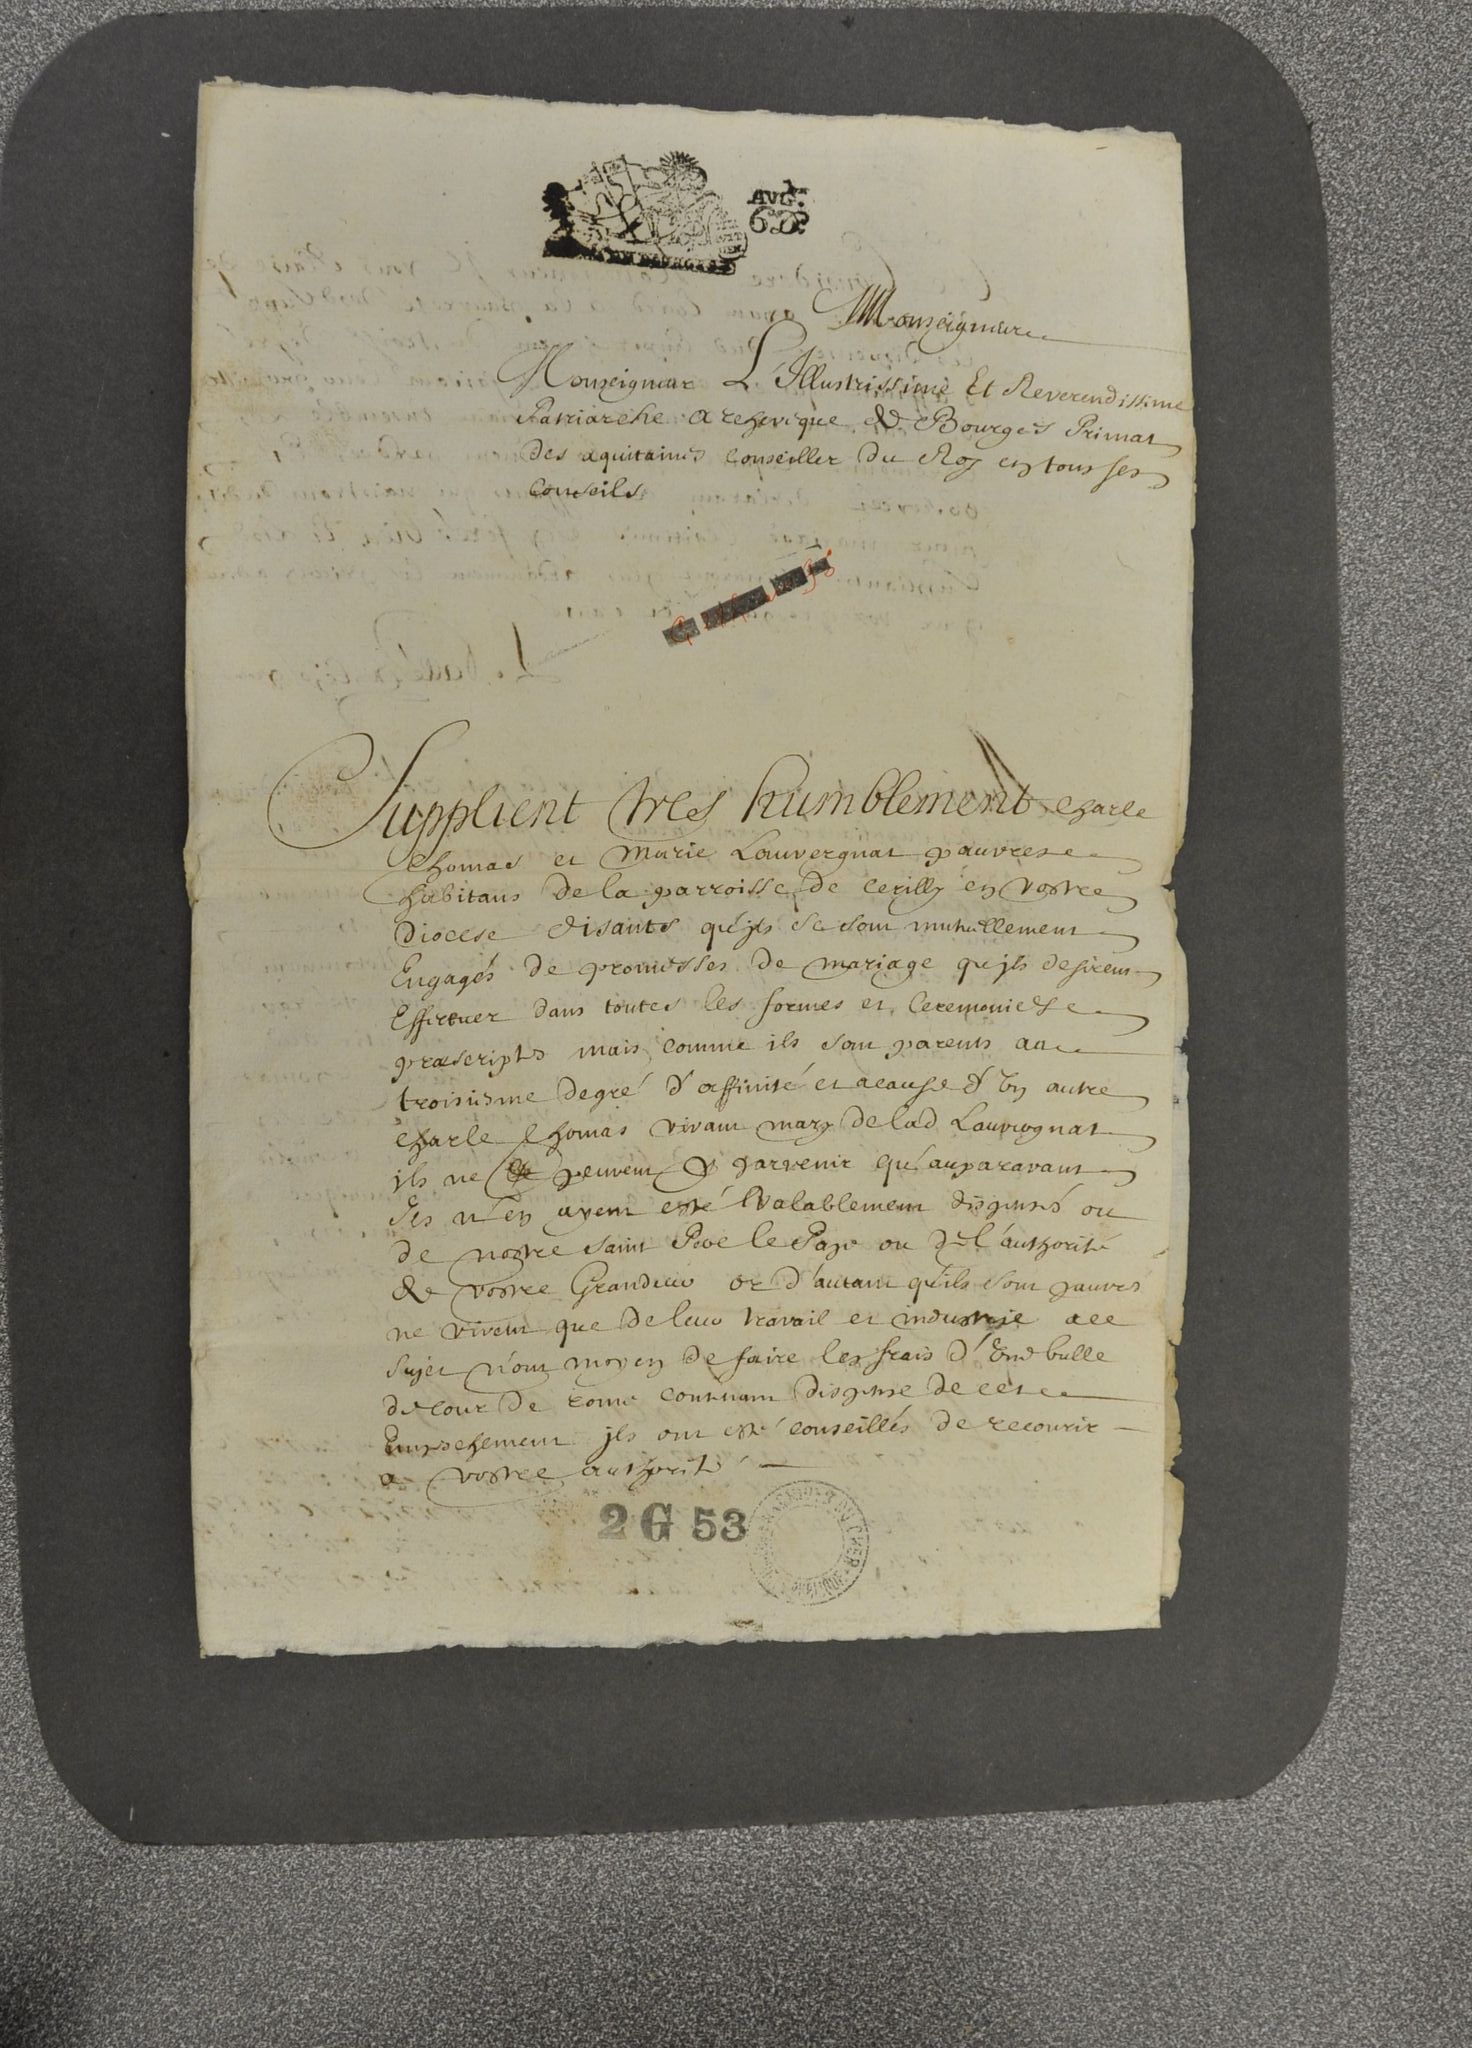 AVG.
6 D.
Monseigneur
Monseigneur L'Illustrissime Et Reverendissime
Patriarche archeveque de Bourges Primat
des aquitaines conseiller du Roy en tous ses
conseils
Supplient tres humblement charle
thomas et Marie Lauvergnat pauvres
habitans de la parroisse de cerilly en vostre
diocese disants qu'jls se sont mutuellement
Engagés de promesses de mariage qu'jls desirent
Effectuer dans toutes les formes et ceremonies
præscripts mais comme ils sont parents au
troisiesme degré d'affinité et acause d'vn autre
charle thomas vivant mary de lad Lauvergnat
ils ne peuvent y parvenir qu'auparavant
Jls n'en ayent esté Valablement dispensés ou
de nostre saint Pere le Pape ou de l'authorité
de vostre Grandeur or d'autant qu'ils sont pauvres
ne vivent que de leur travail et industrie a ce
sujet n'ont moyen de faire les frais d'Vne bulle
de cour de rome contenant dispense de cet
Empechement jls ont esté conseillés de recourir
a vostre authorité
2 G 53